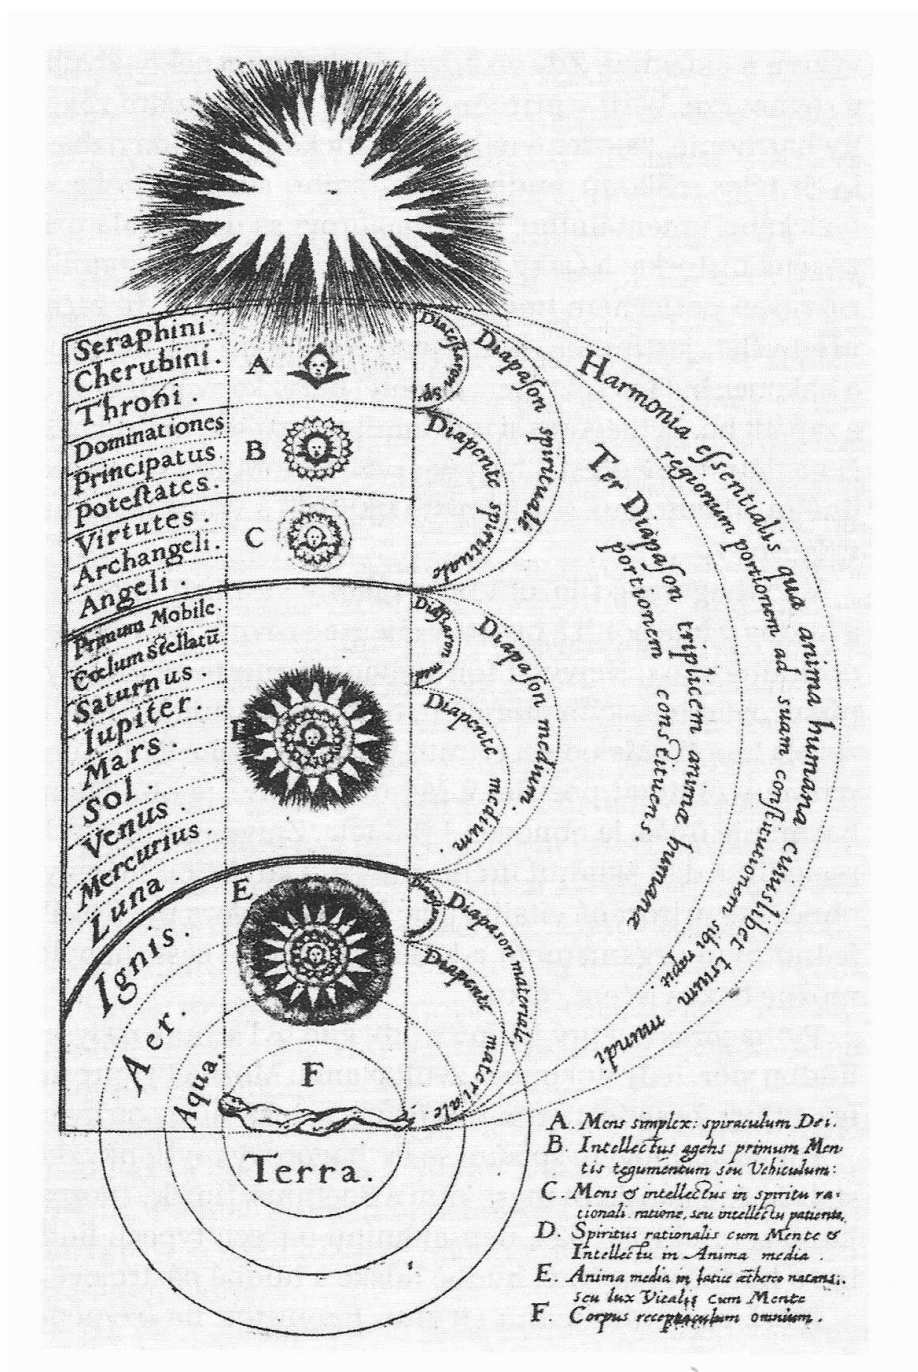 Seraphini.
Cherubini.
Throni.
Dominationes
Principatus.
Potestates.
Virtutes.
Archangeli.
Angeli.
Primum Mobile.
Cœlum stellatū
Saturnus.
Iupiter.
Mars.
Sol.
Venus
Mercurius.
Luna
Ignis.
Aer.
Aqua.
Terra.
A
B
C
E
F
Diatessaron
Diapason spirituale.
Diapente spirituale
Diapason medium.
Diapente medium.
Diapason materiale,
Diapente materiale.
Harmonia essentialis qua anima humana cuiuslibet trium mundi
regionum portionem ad suam constitutionem sibi rapit.
Ter Diapason triplicem animæ humanæ
portionem constituens
A. Mens simplex: spiraculum Dei.
B. Intellectus agens primum Men-
tis tegumentum seu Vehiculum:
C. Mens & intellectus in spiritu ra-
tionali ratione, seu intellectu patiente,
D. Spiritus rationalis cum Mente &
Intellectu in Anima media.
E. Anima media in ætherea natans.
seu lux Vitalis cum Mente
F. Corpus receptaculum omnium.